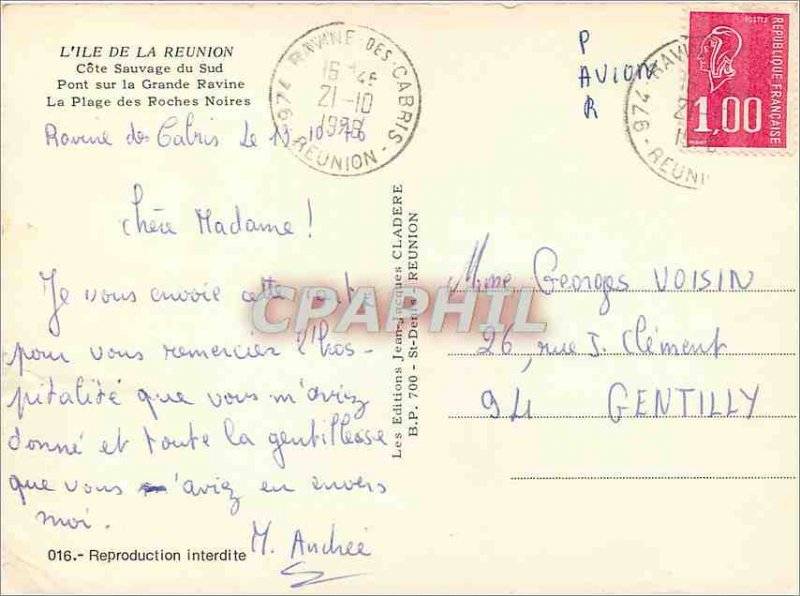 L'ILE DE LA REUNION
Côte Sauvage du Sud
Pont sur la Grande Ravine
La Plage des Roches Noires
974 RAVINE-DES-CABRIS - REUNION -
21-10
Ravine des Cabris Le
Chère Madame !
Je vous envoie cette carte
pour vous remercier l'hos-
pitalité que vous m'aviez
donné et toute la gentillesse
que vous m'aviez en envers
moi.
M. Andrée
016.- Reproduction interdite
Les Editions Jean-Jacques CLADERE
B.P. 700 - St-Denis - REUNION
CPARPHIL
P
AVION
R
974 RAVI
REUNI
POSTES
REPUBLIQUE FRANÇAISE
1,00
Mme Georges VOISIN
26, rue J. Clément
94 GENTILLY